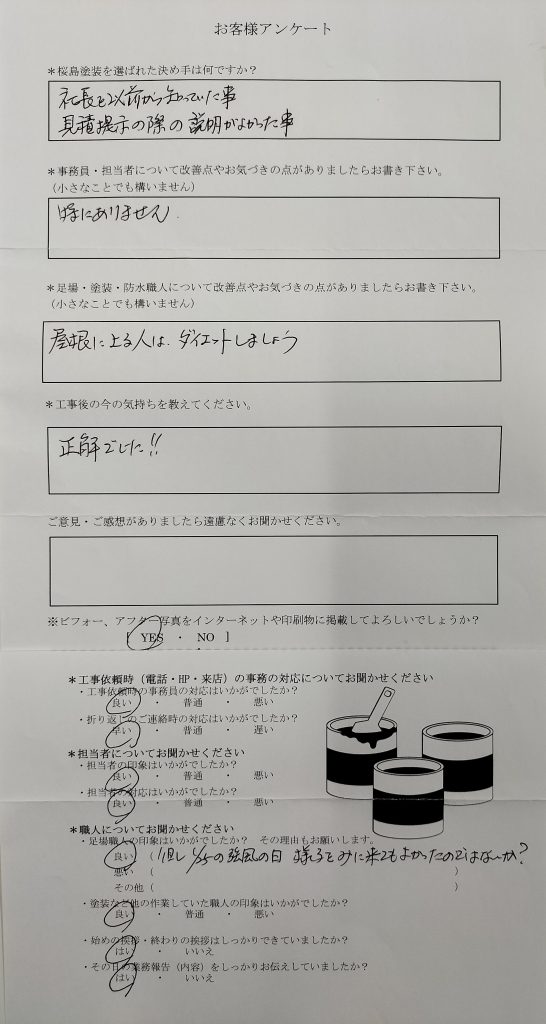 お客様アンケート
＊桜島塗装を選ばれた決め手は何ですか？
社長を以前から知っていた事
見積提示の際の説明がよかった事
＊事務員・担当者について改善点やお気づきの点がありましたらお書き下さい。
（小さなことでも構いません）
特にありません.
＊足場・塗装・防水職人について改善点やお気づきの点がありましたらお書き下さい。
（小さなことでも構いません）
屋根に上る人は、ダイエットしましょう
＊工事後の今の気持ちを教えてください。
正解でした!!
ご意見・ご感想がありましたら遠慮なくお聞かせください。
※ビフォー、アフター写真をインターネットや印刷物に掲載してよろしいでしょうか？
[ YES ・ NO ]
＊工事依頼時（電話・HP・来店）の事務の対応についてお聞かせください
・工事依頼時の事務員の対応はいかがでしたか？
良い ・ 普通 ・ 悪い
・折り返しのご連絡時の対応はいかがでしたか？
早い ・ 普通 ・ 遅い
＊担当者についてお聞かせください
・担当者の印象はいかがでしたか？
良い ・ 普通 ・ 悪い
・担当者の対応はいかがでしたか？
良い ・ 普通 ・ 悪い
＊職人についてお聞かせください
・足場職人の印象はいかがでしたか？ その理由もお願いします。
良い （ 但し 1/25の強風の日 様子をみに来てもよかったのではないか？
悪い （ ）
その他（ ）
・塗装など他の作業していた職人の印象はいかがでしたか？
良い ・ 普通 ・ 悪い
・始めの挨拶・終わりの挨拶はしっかりできていましたか？
はい ・ いいえ
・その日の業務報告（内容）をしっかりお伝えしていましたか？
はい ・ いいえ